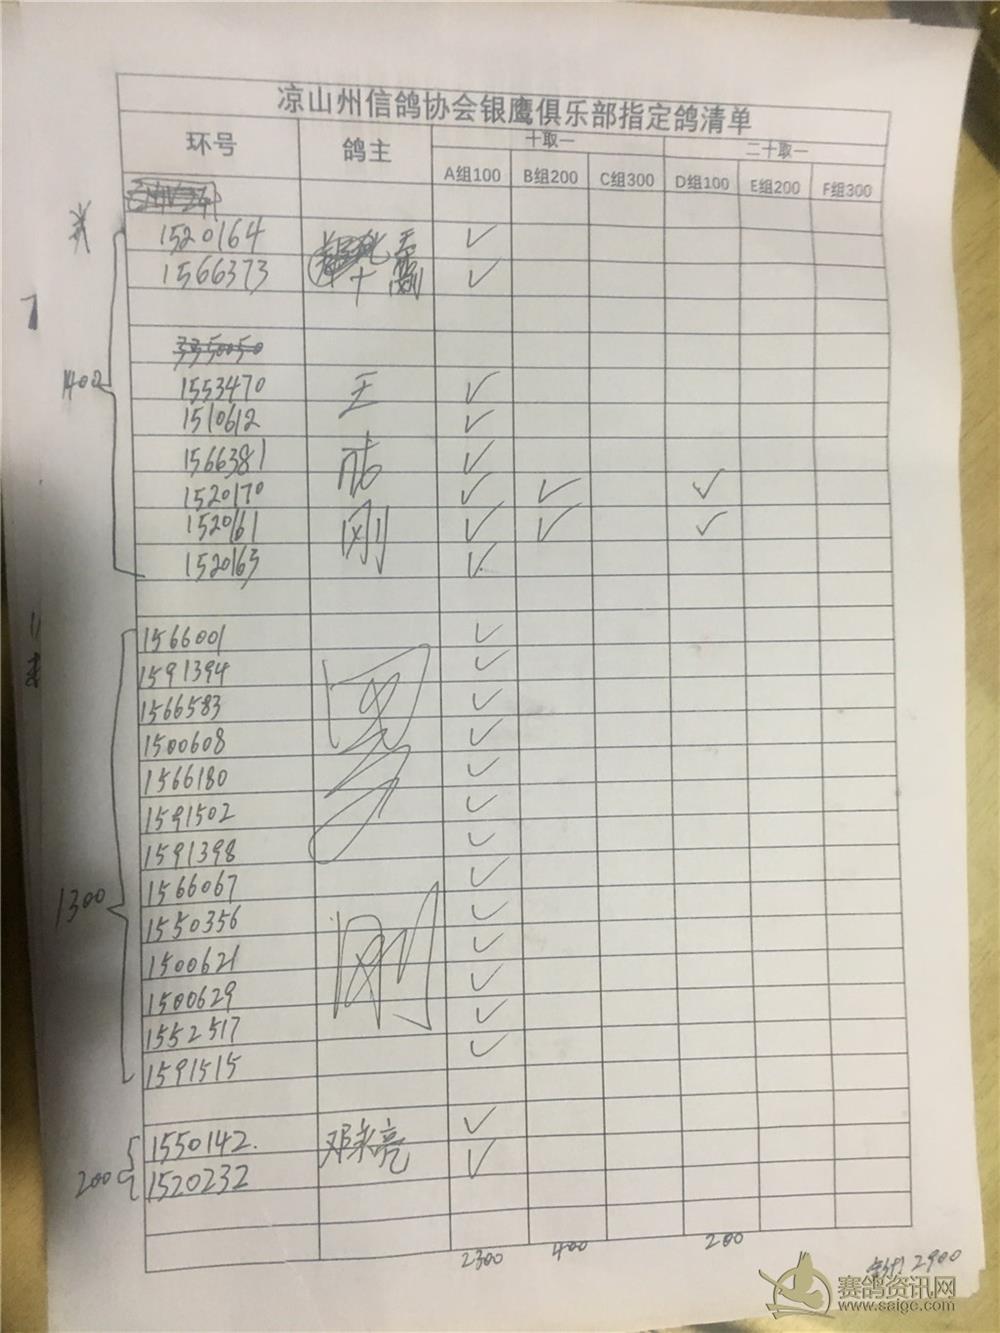 凉山州信鸽协会银鹰俱乐部指定鸽清单
环号 鸽主 十取一 二十取一
A组100 B组200 C组300 D组100 E组200 F组300
1520164 ✓
1566373 ✓
3350050
1400
1553470 王 ✓
1510612 ✓
1566381 ✓
1520170 ✓ ✓ ✓
1520161 刚 ✓ ✓ ✓
1520163 ✓
1566001 ✓
1591394 ✓
1566583 ✓
1500608 ✓
1566180 ✓
1591502 ✓
1591398 ✓
1566067 ✓
1300
1550356 ✓
1500621 刚 ✓
1500629 ✓
1552517 ✓
1591515 ✓
1550142. 邓永亮 ✓
200
1520232 ✓
2300 400 200
2900
赛鸽资讯网
www.saige.com